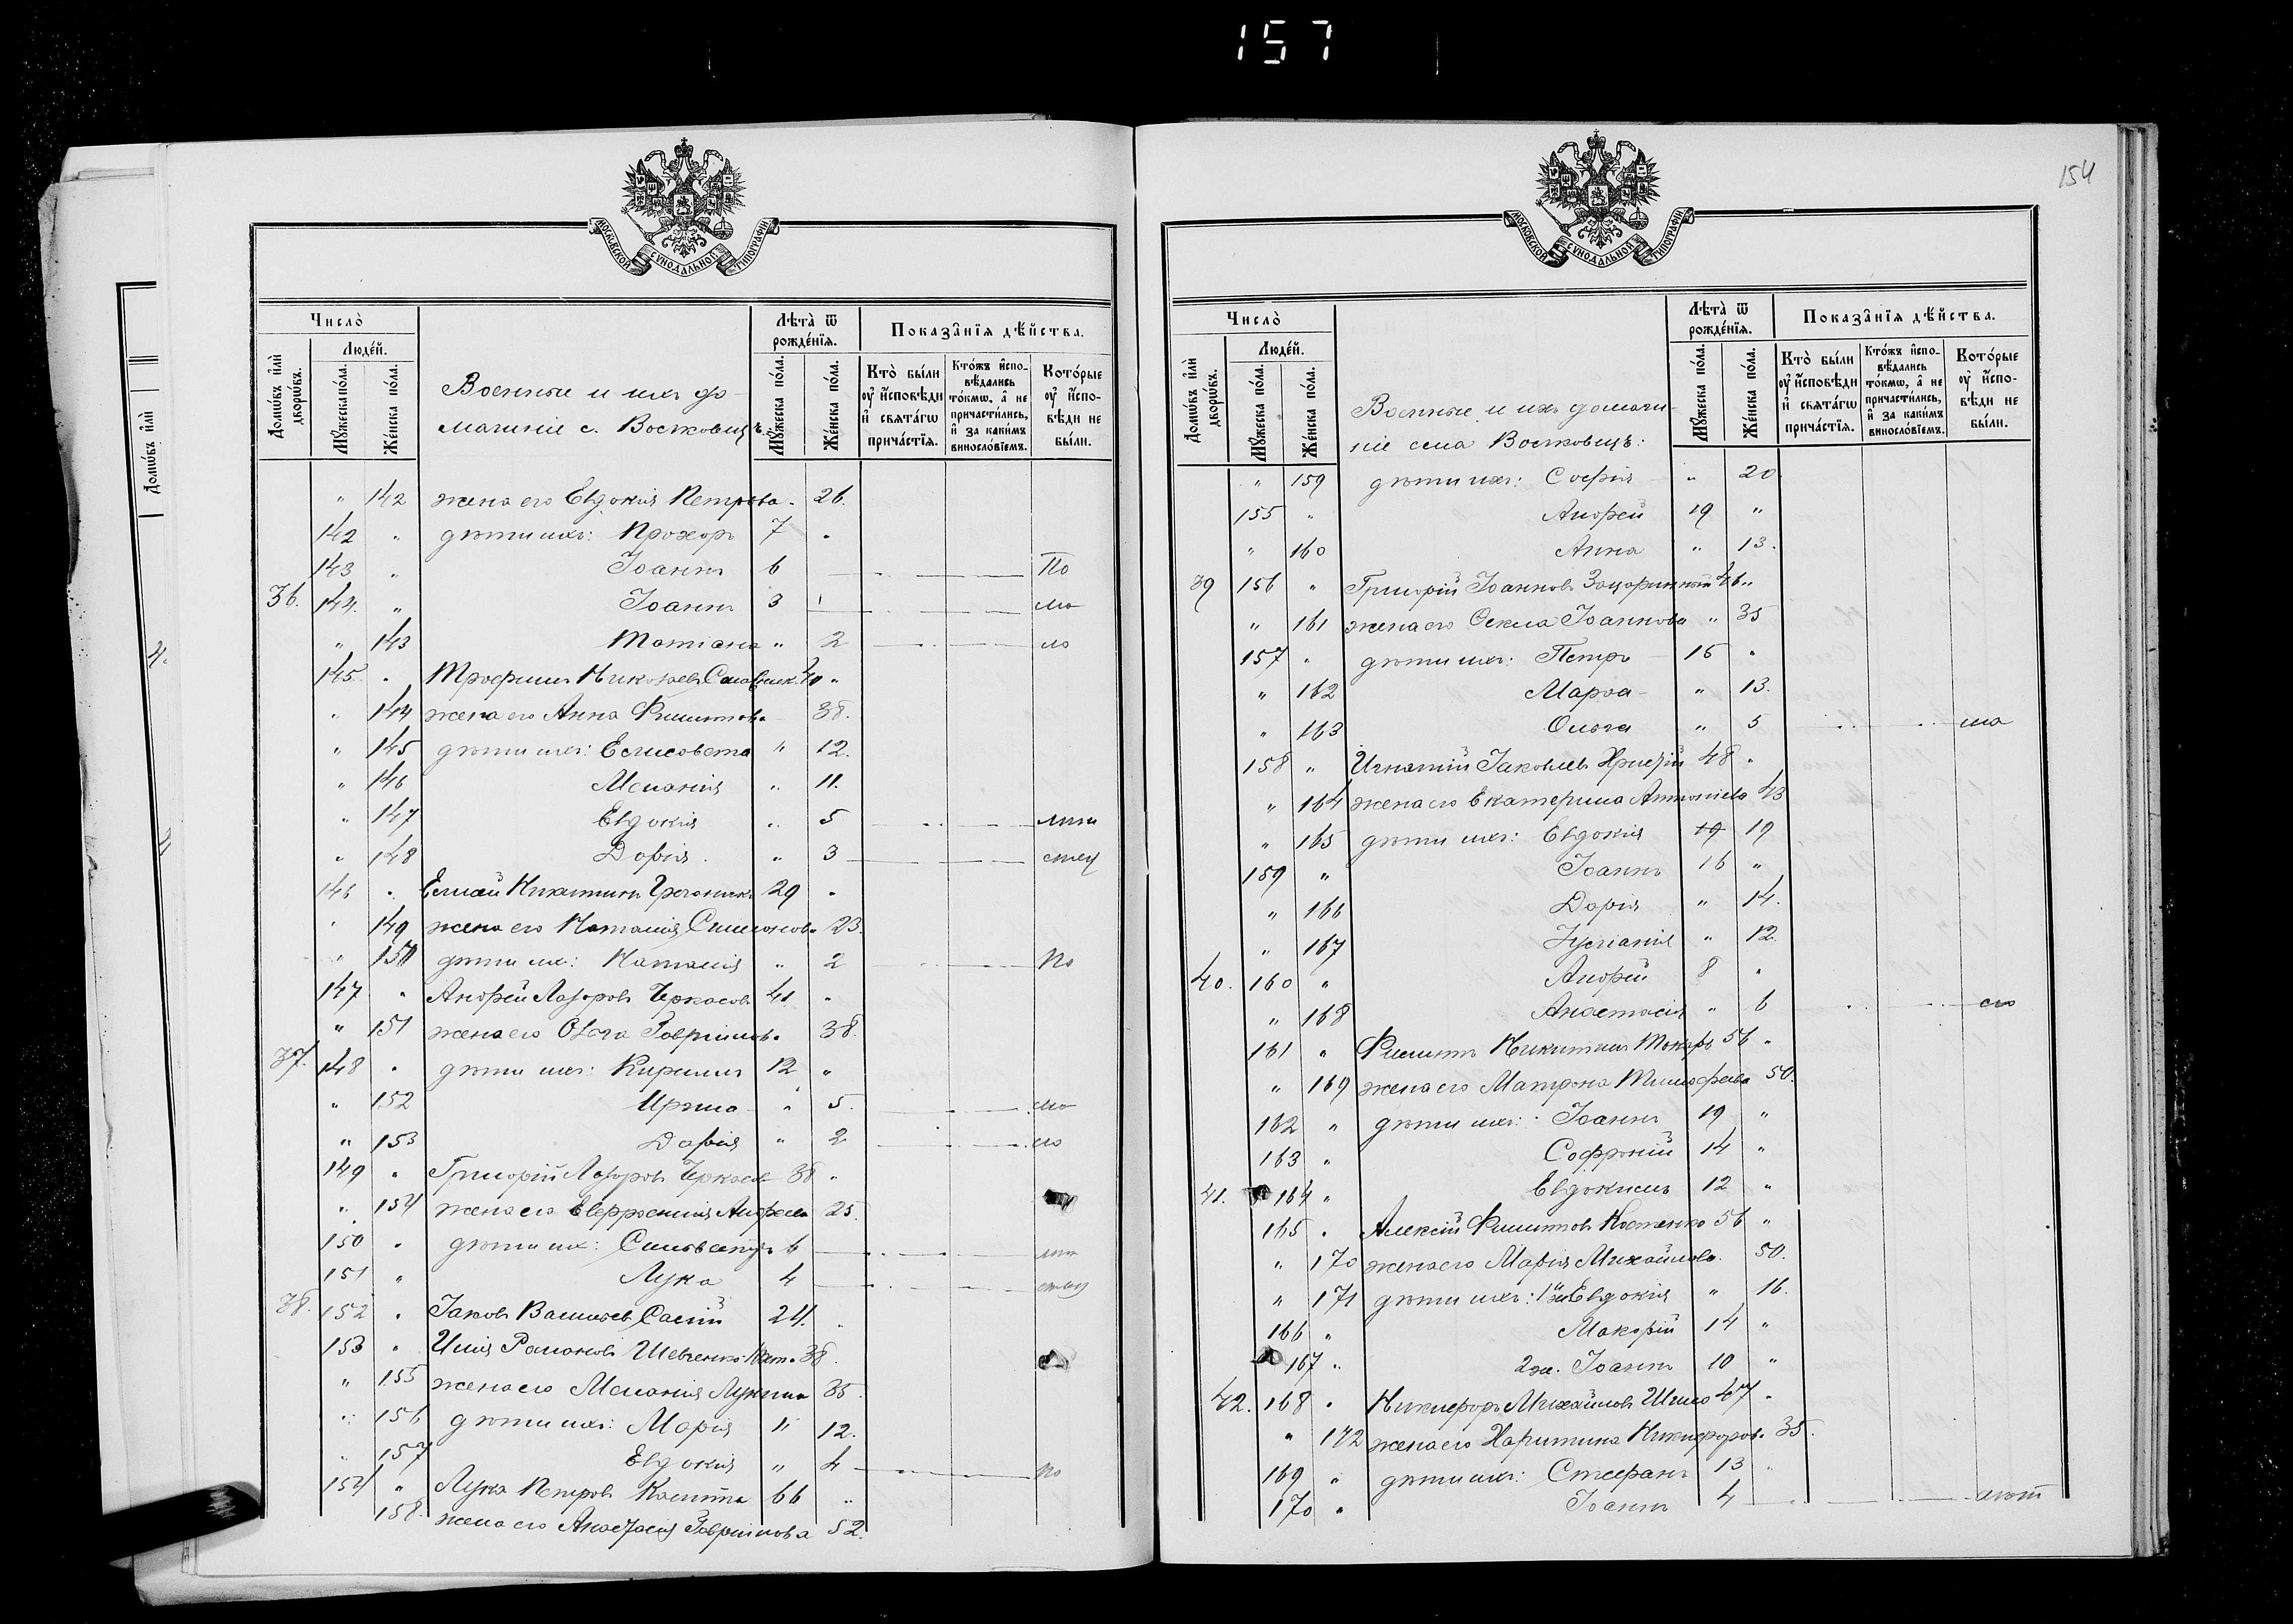 157
МОСКОВСКОЙ СУНОДАЛЬНОЙ ТИПОГРАФІИ
Число̀
Людéй.
Домѡ́въ и҆лѝ дворѡ́въ.
Мꙋ́жеска по́ла.
Же́нска по́ла.
Военные и ихъ до-
машніе с. Восковцъ
Лѣта̀ ѿ рожде́нїѧ.
Мꙋ́жеска по́ла.
Же́нска по́ла.
Показа̑нїѧ дѣ́йства.
Кто̀ бы́ли ᲂу҆ и҆́сповѣди и҆ свѧта́гѡ прича́стїѧ.
Кто́жъ и҆спо- вѣ́дались то́кмѡ, а҆ не причасти́лись, и҆ за каки́мъ виносло́вїемъ.
Кото́рые ᲂу҆ и҆́спо- вѣди не бы́ли.
" 142 жена его Евдокія Петрова 26.
142 " дѣти ихъ: Прохоръ 7 "
143 " Іоаннъ 6 По
36. 144. " Іоаннъ 3 ма
" 143 Татіана " 2 ло
145. " Трофимъ Николаевъ 40 "
" 144 жена его Анна Филиппова 38.
" 145 дѣти ихъ: Елисовета " 12.
" 146 Меланія " 11.
" 147 Евдокія " 5
" 148 Дарія. " 3
146 " Никитинъ 29 "
" 149 жена его Наталія 23.
" 150 дѣти ихъ: Наталія " 2 По
147 " Андрей Лазоровъ Черкасовъ 41 "
" 151 жена его Ольга Гавриилова 38.
37. 148 " дѣти ихъ: Кириллъ 12 "
" 152 Ирина " 5. ма
" 153 Дарія " 2 ло
149 " Григорій Лазоровъ Черкасовъ 38 "
" 154 жена его Евфросинія Андреева 25.
150 " дѣти ихъ: 6
151 " Лука 4
38. 152 " Іаковъ Васильевъ 24.
153 " Илія Романовъ Шевченко 38.
" 155 жена его Меланія Лукина 35.
" 156 дѣти ихъ: Марія " 12.
" 157 Евдокія " 4 По
154 " Лука Петровъ 66 "
158. жена его Анастасія Гавриилова 52.
154
МОСКОВСКОЙ СУНОДАЛЬНОЙ ТИПОГРАФІИ
Число̀
Людéй.
Домѡ́въ и҆лѝ дворѡ́въ.
Мꙋ́жеска по́ла.
Же́нска по́ла.
Военные и ихъ домаш-
ніе села Восковцъ:
Лѣта̀ ѿ рожде́нїѧ.
Мꙋ́жеска по́ла.
Же́нска по́ла.
Показа̑нїѧ дѣ́йства.
Кто̀ бы́ли ᲂу҆ и҆́сповѣди и҆ свѧта́гѡ прича́стїѧ.
Кто́жъ и҆спо- вѣ́дались то́кмѡ, а҆ не причасти́лись, и҆ за каки́мъ виносло́вїемъ.
Кото́рые ᲂу҆ и҆́спо- вѣди не бы́ли.
" 159 дѣти ихъ: Софія " 20
155 " Андрей 19 "
" 160 Анна " 13.
39 156 " Григорій Іоанновъ 46 "
" 161 жена его Іоаннова " 35
157 " дѣти ихъ: Петръ 15 "
" 162 Марѳа " 13.
" 163 Ольга " 5 ма
158 " Игнатій Іаковлевъ 48 "
" 164 жена его Екатерина Антоніева 43
" 165 дѣти ихъ: Евдокія 19 19
159 " Іоаннъ 16 "
" 166 Дарія " 14.
" 167 Іуліанія " 12.
40. 160 " Андрей 8 "
" 168 Анастасія " 6
161 " Филиппъ Никитинъ Токарь 56 "
" 169 жена его Матрона Тимофеева 50.
162 " дѣти ихъ: Іоаннъ 19 "
163 " Софроній 14 "
41. 164 " Евдокимъ 12 "
165 " Алексій Филипповъ Костенко 56 "
" 170 жена его Марія Михайлова 50.
" 171 дѣти ихъ: Евдокія " 16.
166 " Макарій 14 "
167 " 2 ж. Іоаннъ 10 "
42. 168 " Никифоръ Михайловъ 47 "
" 172 жена его Харитина Никифорова 35.
169 " дѣти ихъ: Стефанъ 13 "
170 " Іоаннъ 4